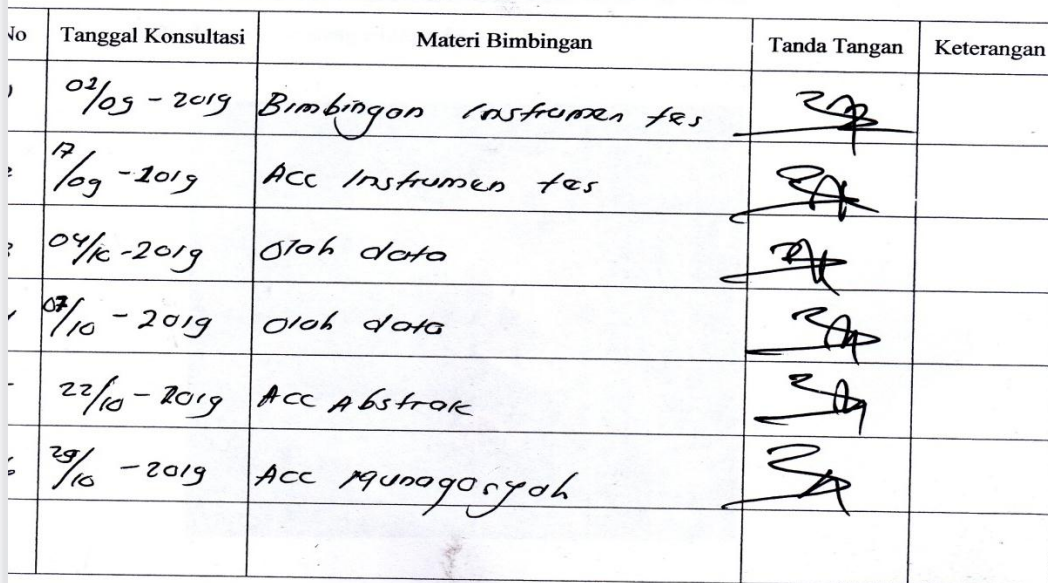 No Tanggal Konsultasi Materi Bimbingan Tanda Tangan Keterangan
02/09 - 2019 Bimbingan Instrumen tes
17/09 - 2019 Acc Instrumen tes
04/10 - 2019 Olah data
07/10 - 2019 Olah data
22/10 - 2019 Acc Abstrak
29/10 - 2019 Acc Munaqasyah